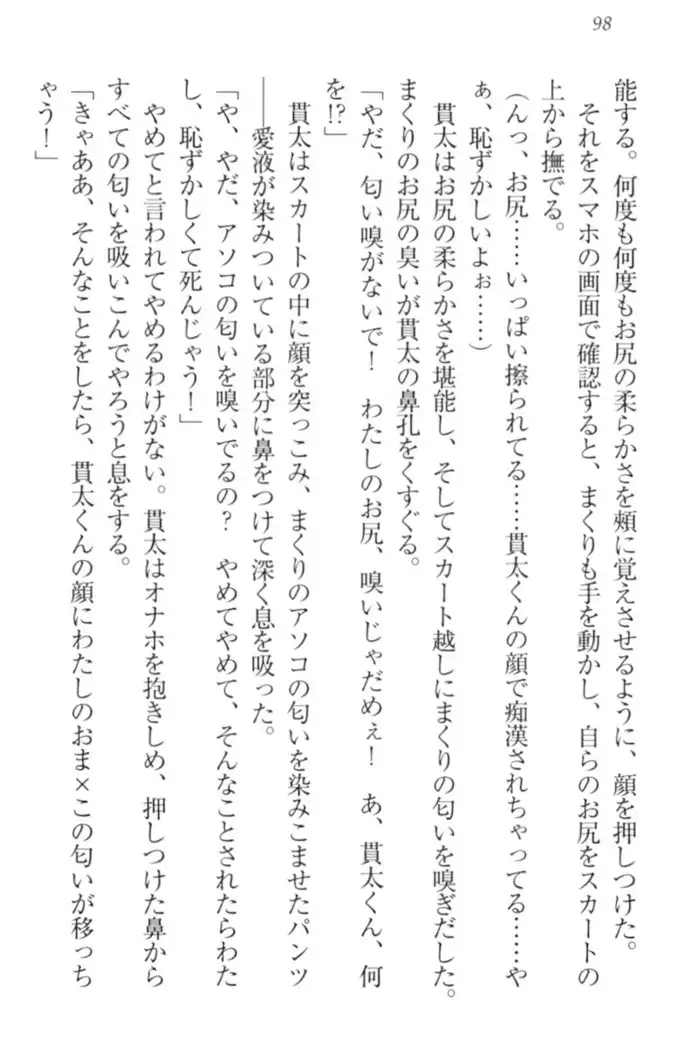 98
能する。何度も何度もお尻の柔らかさを頰に覚えさせるように、顔を押しつけた。
それをスマホの画面で確認すると、まくりも手を動かし、自らのお尻をスカートの
上から撫でる。
(んっ、お尻……いっぱい擦られてる……貫太くんの顔で痴漢されちゃってる……や
ぁ、恥ずかしいよぉ……)
貫太はお尻の柔らかさを堪能し、そしてスカート越しにまくりの匂いを嗅ぎだした。
まくりのお尻の臭いが貫太の鼻孔をくすぐる。
「やだ、匂い嗅がないで！　わたしのお尻、嗅いじゃだめぇ！　あ、貫太くん、何
を!?」
貫太はスカートの中に顔を突っこみ、まくりのアソコの匂いを染みこませたパンツ
――愛液が染みついている部分に鼻をつけて深く息を吸った。
「や、やだ、アソコの匂いを嗅いでるの？　やめてやめて、そんなことされたらわた
し、恥ずかしくて死んじゃう！」
やめてと言われてやめるわけがない。貫太はオナホを抱きしめ、押しつけた鼻から
すべての匂いを吸いこんでやろうと息をする。
「きゃああ、そんなことをしたら、貫太くんの顔にわたしのおま×この匂いが移っち
ゃう！」